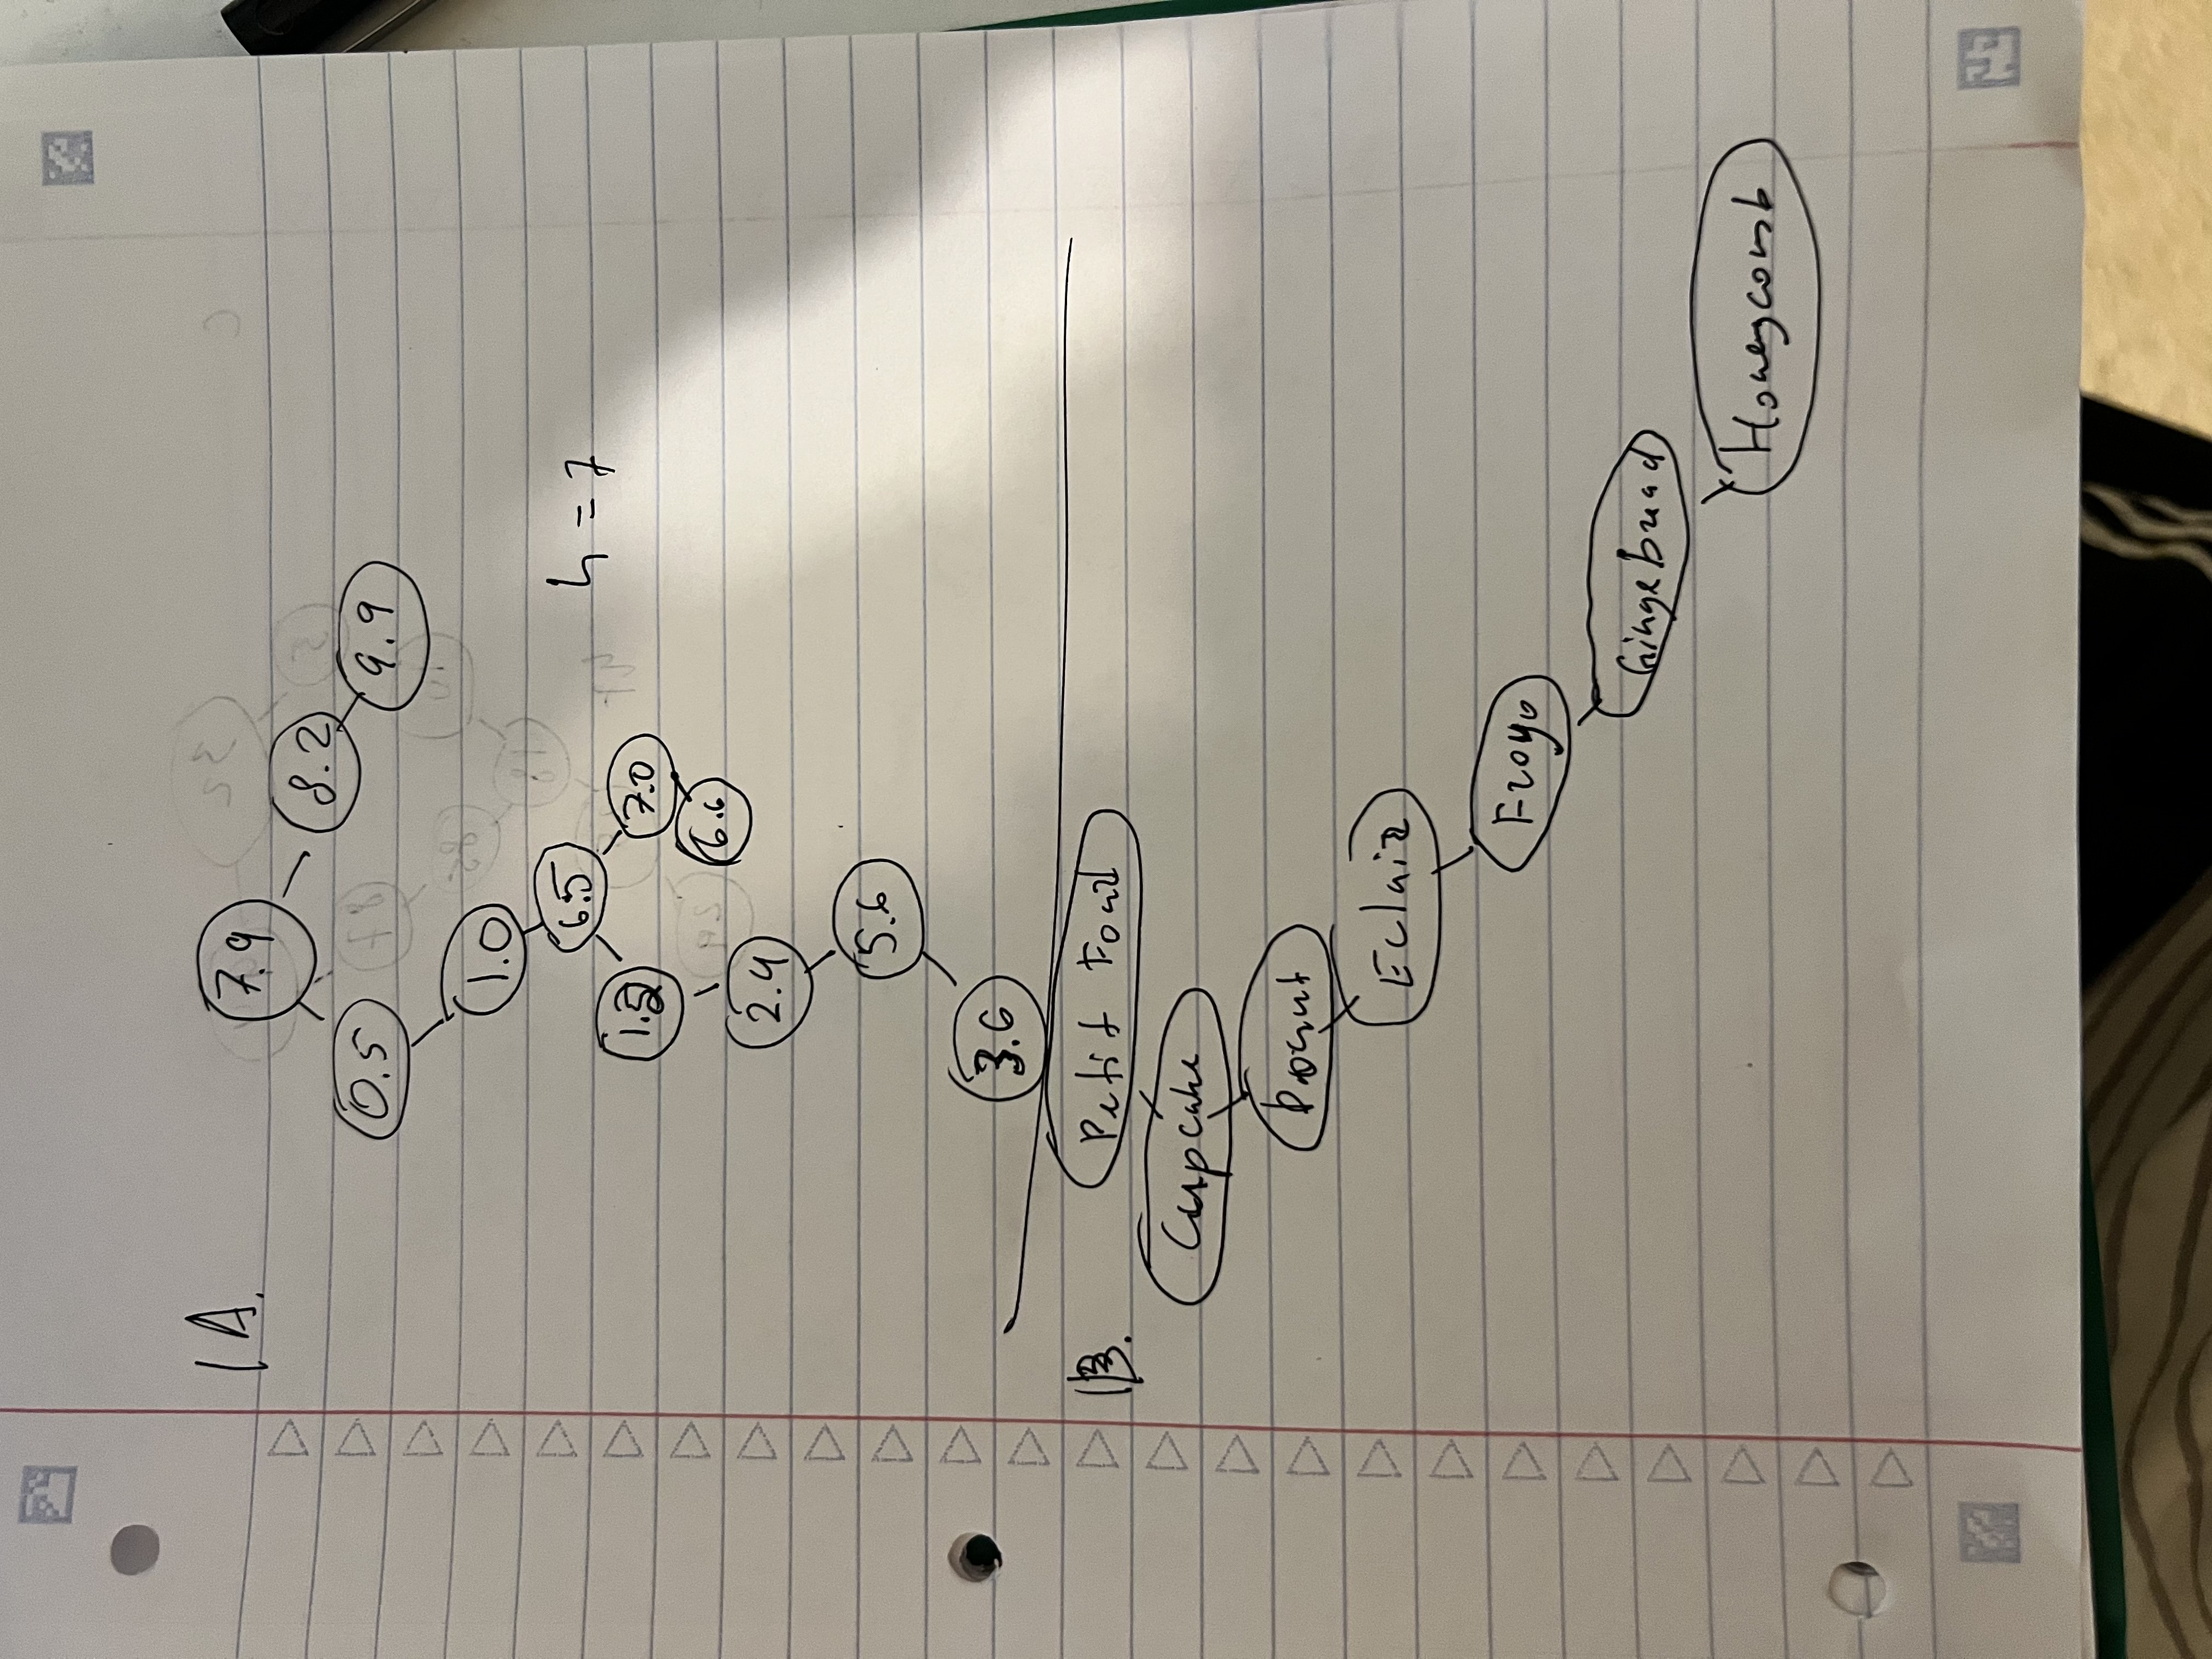 1A.
7.9
8.2
0.5
9.9
1.0
6.5
h = 7
7.0
6.6
2.4
5.6
3.6
1B.
Petit Four
Cupcake
Donut
Eclair
Froyo
GingeBread
Honeycomb